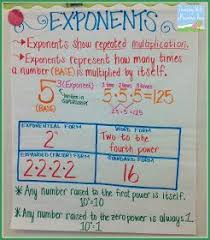 EXPONENTS
*Exponents show repeated multiplication.
*Exponents represent how many times
a number (BASE) is multiplied by itself.
5³ (Exponent)
*written in
superscript
(BASE)
5·5·5=125
EXPONENTIAL FORM
2⁴
WORD FORM
Two to the
fourth power
EXPANDED (FACTOR) FORM
2·2·2·2
STANDARD FORM
16
*Any number raised to the first power is itself.
10¹=10
*Any number raised to the zero power is always 1.
10⁰=1